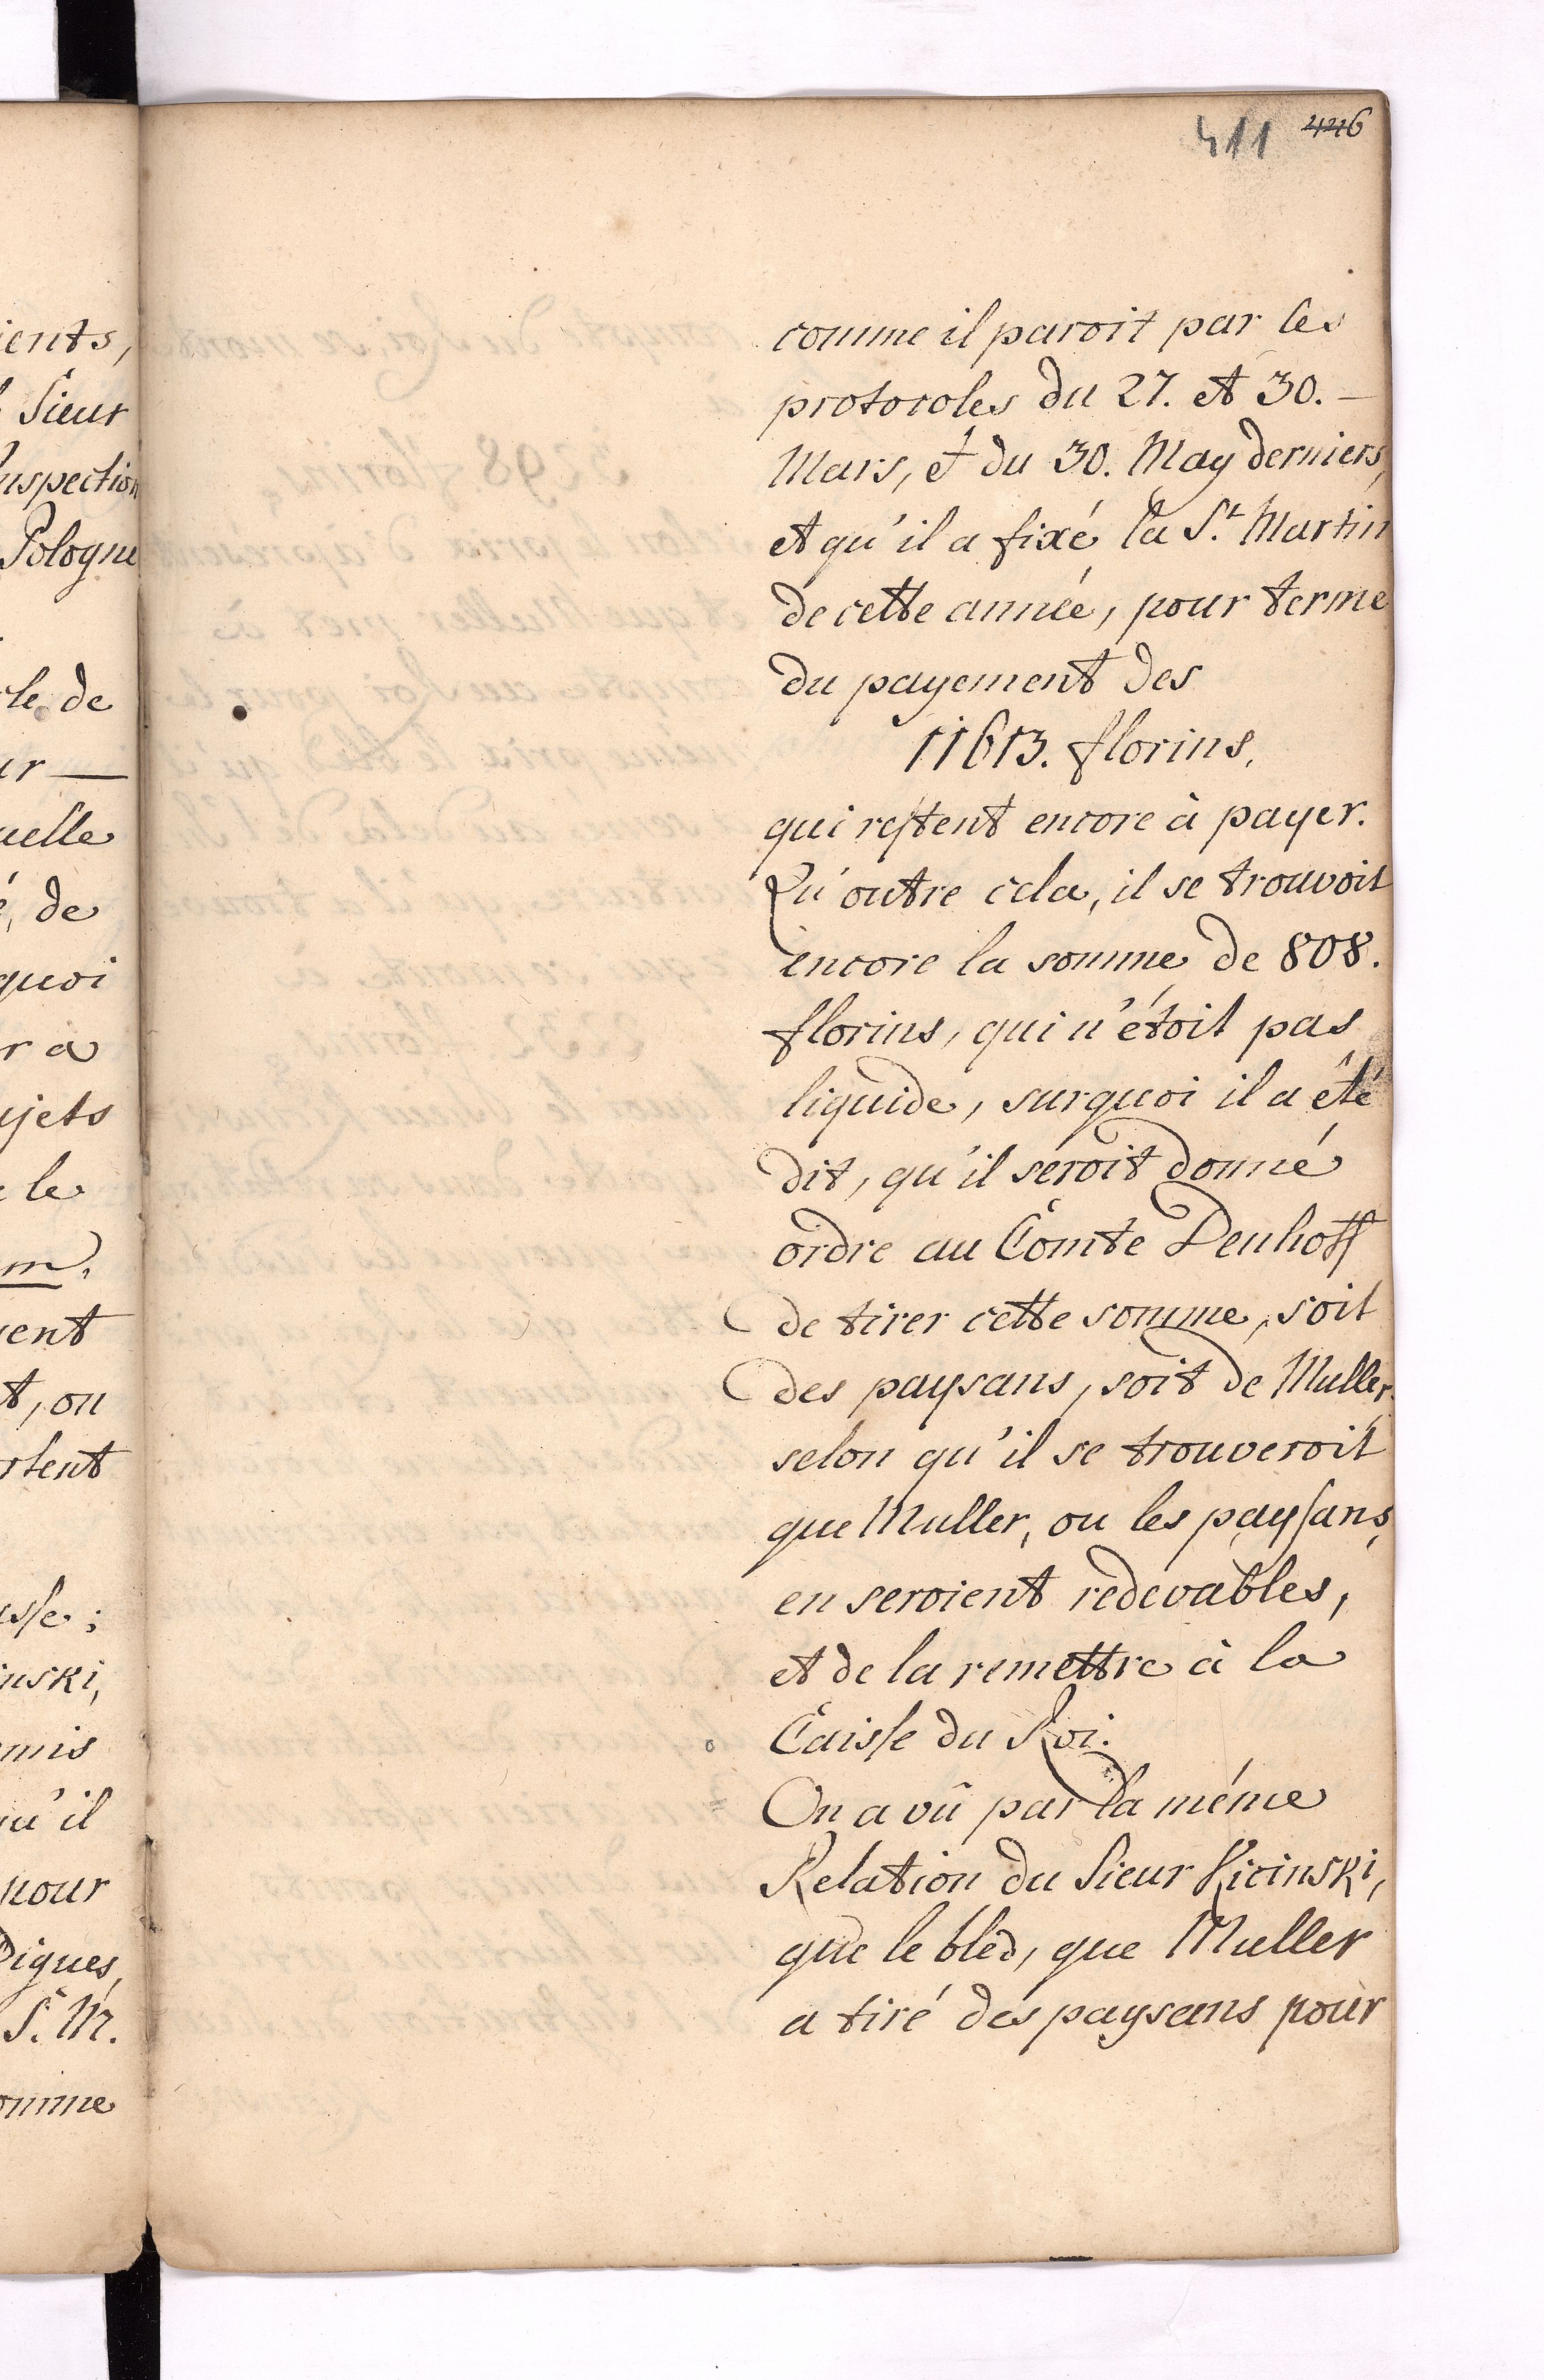 411 4216
comme il paroit par les
protocoles du 27. et 30. –
Mars, et du 30. May derniers,
et qu'il a fixé la St. Martin
de cette année, pour terme
du payement des
11613. florins,
qui restent encore à payer.
Qu'outre cela, il se trouvoit
encore la somme de 808.
florins, qui n'étoit pas
liquide, surquoi il a été
dit, qu'il seroit donné
ordre au Comte Denhoff
de tirer cette somme, soit
des paysans, soit de Muller
selon qu'il se trouveroit
que Muller, ou les paysans,
en seroient redevables,
et de la remettre à la
Caisse du Roi.
On a vû par la même
Relation du Sieur Kicinski,
que le bled, que Muller
a tiré des paysans pour
ients,
Sieur
Inspection
Pologne
cle de
ur —
uelle
é, de
quoi
r a
ujets
le
m,
vent
t, ou
rtent
usse;
inski,
mis
qu'il
pour
Digues,
S. M.
omme